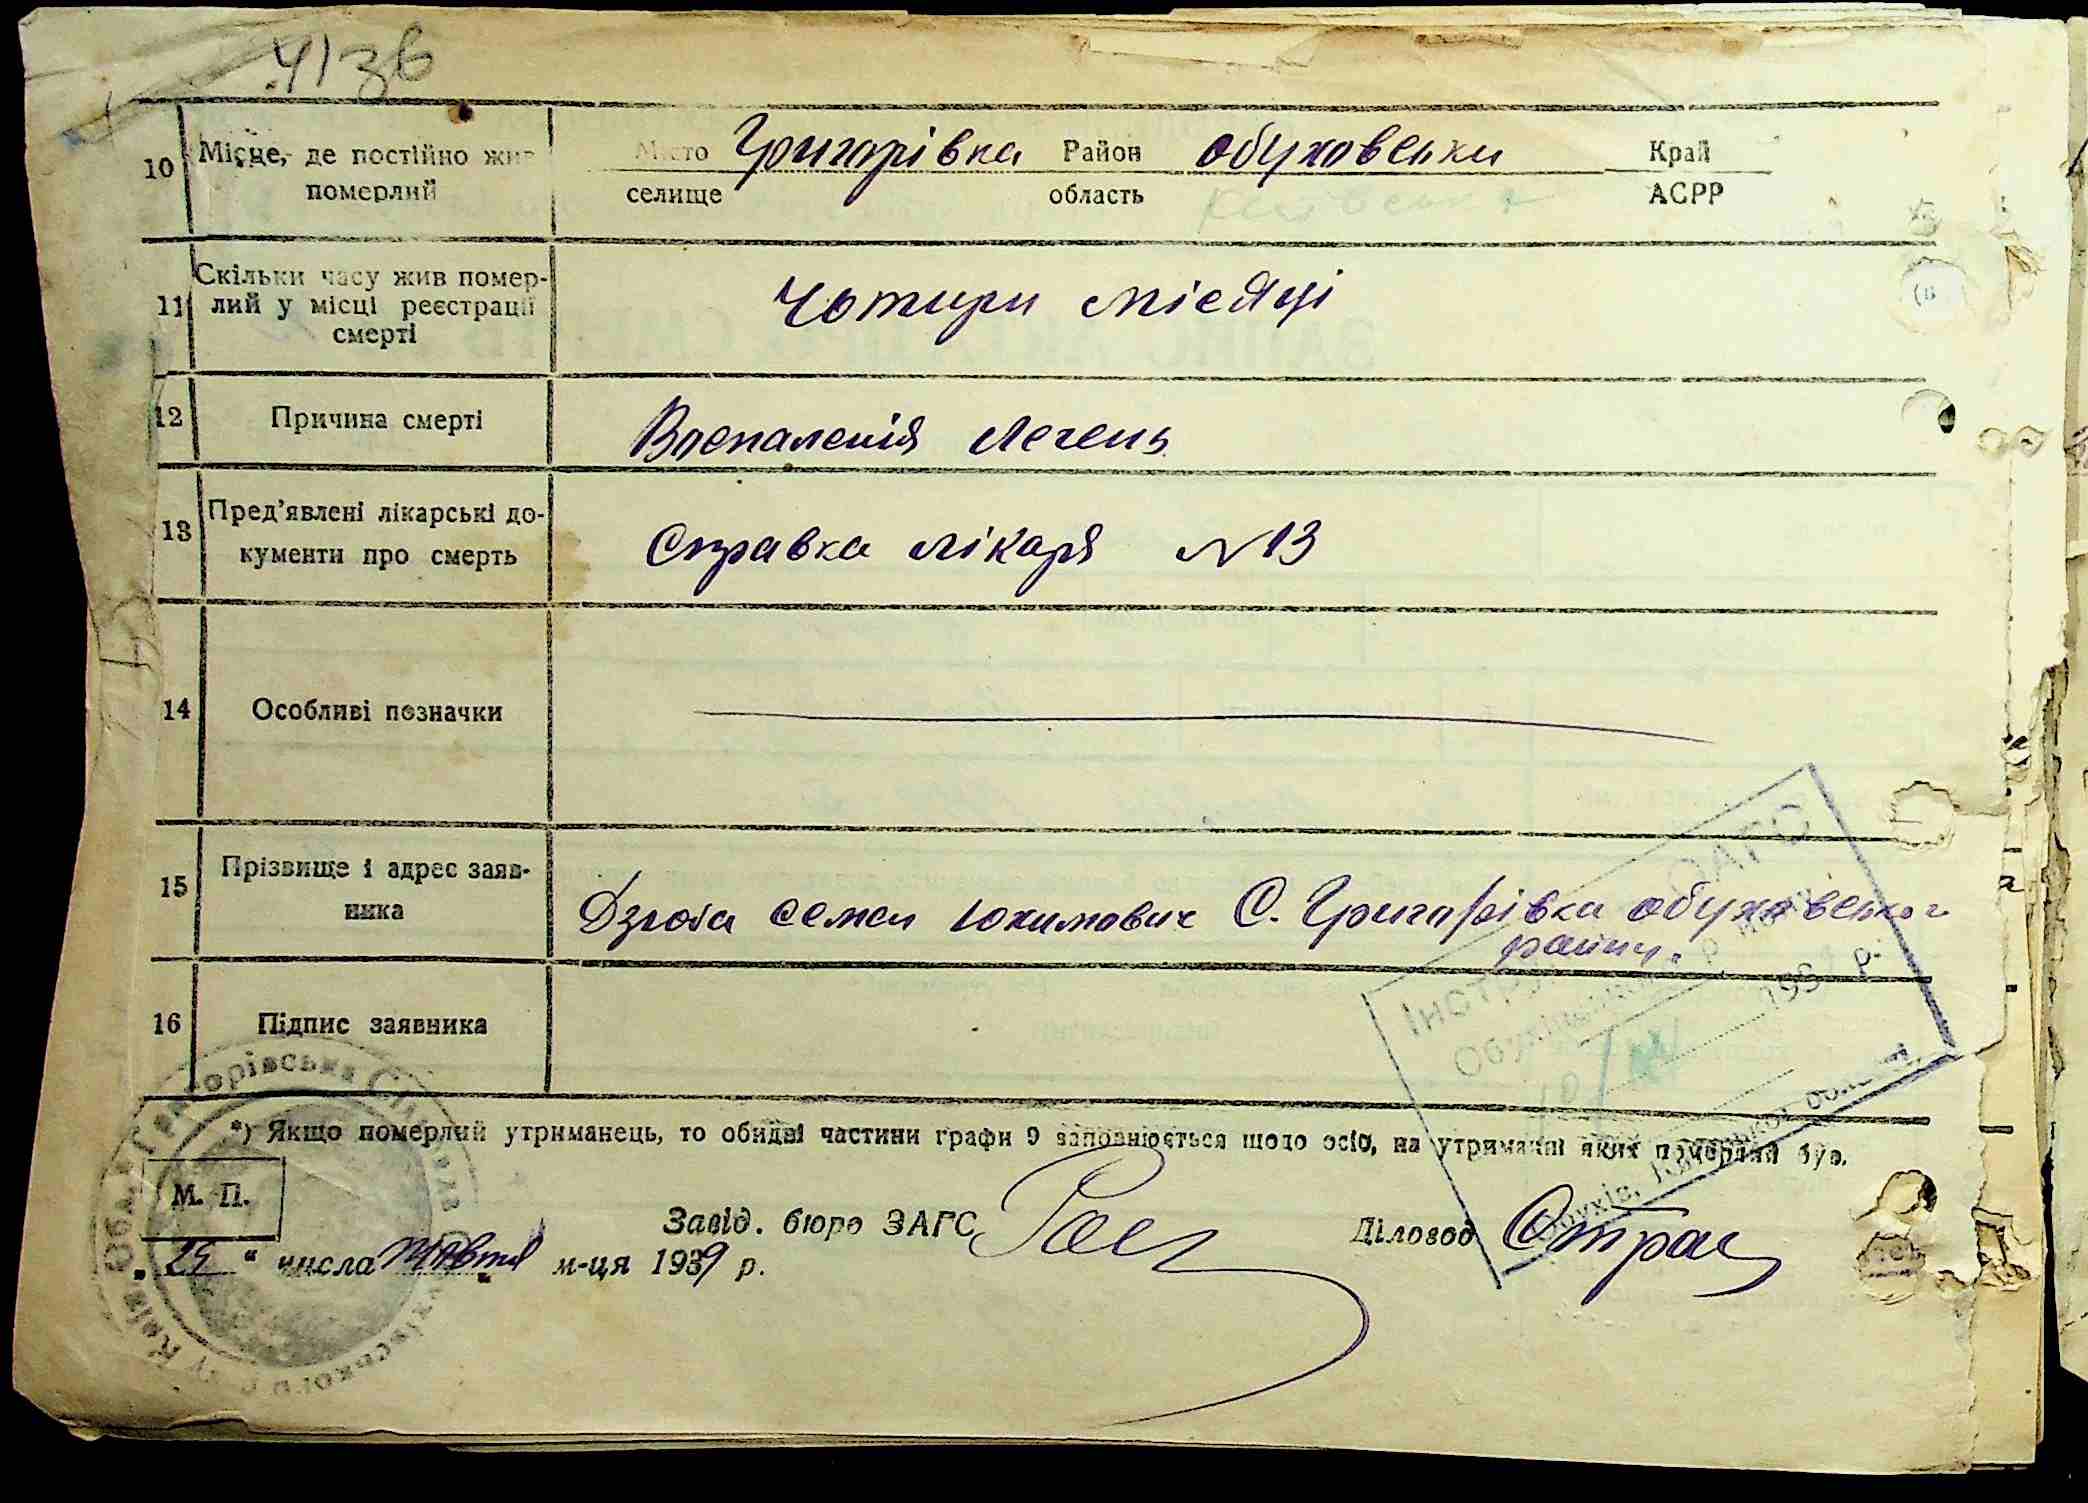 4136
10 Місце, де постійно жив Місто Григорівка Район Обуховськи Край
померлий селище область Київська АСРР
11 Скільки часу жив помер-
лий у місці реєстрації
смерті
Чотири місяці
12 Причина смерті Воспаленія Легень
13 Пред'явлені лікарські до-
кументи про смерть
Справка лікаря N13
14 Особливі позначки
15 Прізвище і адрес заяв-
ника
Дзюба Семен Юхимович С. Григорівка Обуховського
району.
16 Підпис заявника
*) Якщо померлий утриманець, то обидві частини графи 9 заповнюється щодо осіб, на утриманні яких померлий був.
М. П.
Завід. бюро ЗАГС Діловод
„25“ числа Жовтня м-ця 1939 р.
ОАГС
Інстр
193 р.